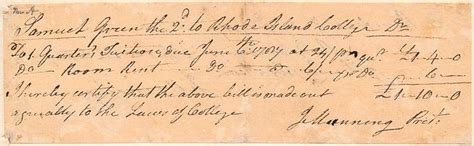 Samuel Green the 2d. to Rhode Island College Dr
To 1 Quarters Tuition, due June 6th: 1787 at 24/ pr qur. £1-4-0
Do Room Rent Do by Do 6
£1-10-0
I hereby certify that the above bill is made out
agreeably to the Laws of College
J Manning Prest.